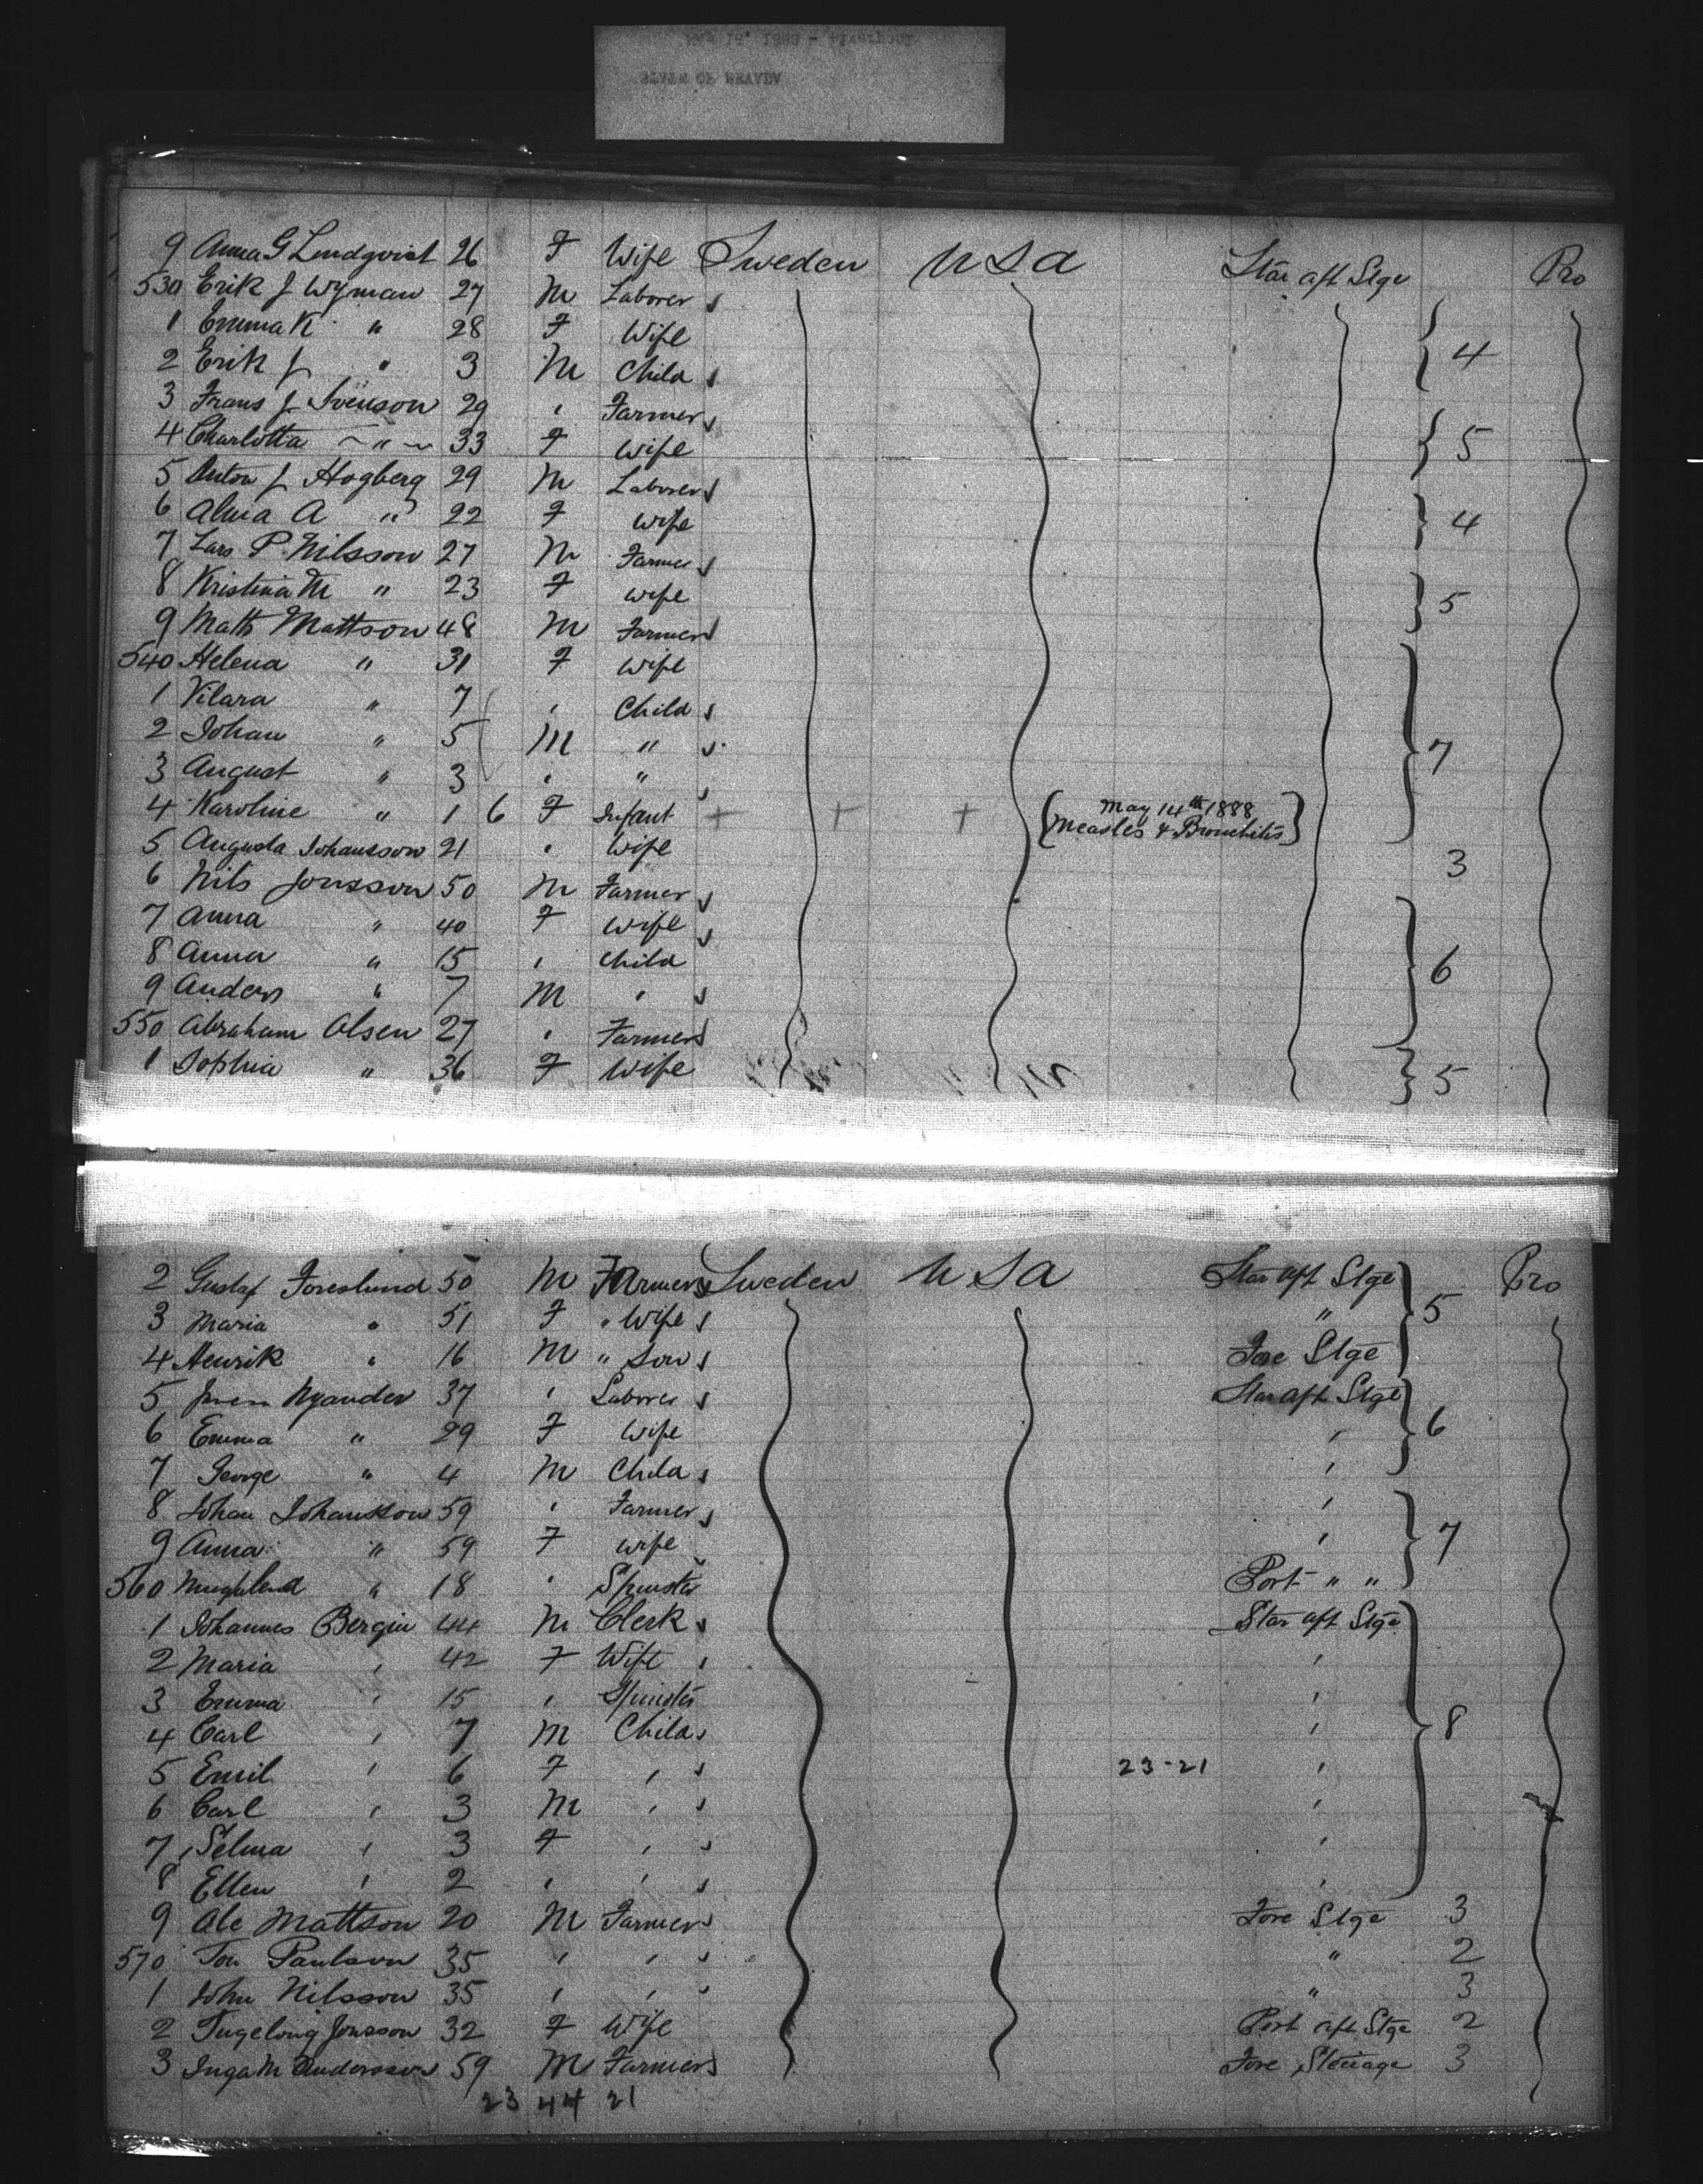 9 Anna G Lindqvist 26 F Wife Sweden U S a Star aft Stge Pro
530 Erik J Wyman 27 M Laborer
1 Emma K " 28 F Wife
2 Erik J " 3 M Child 4
3 Frans J Svenson 29 ' Farmer
4 Charlotta " 33 F Wife 5
5 Anton J Hogberg 29 M Laborer
6 Alma A " 22 F Wife 4
7 Lars P. Nilsson 27 M Farmer
8 Kristina M " 23 F Wife 5
9 Matts Mattson 48 M Farmer
540 Helena " 31 F Wife
1 Vilara " 7 ' Child
2 Johan " 5 M " 7
3 August " 3 ' "
4 Karoline " 1 6 F Infant + + + May 14th 1888
Measles & Bronchitis
5 Augusta Johansson 21 ' Wife 3
6 Nils Jonsson 50 M Farmer
7 Anna " 40 F Wife
8 Anna " 15 ' Child 6
9 Anders " 7 M '
550 Abraham Olsen 27 ' Farmer
1 Sophia " 36 F Wife 5
2 Gustaf Foreslund 50 M Farmer Sweden U S a Star aft Stge Pro
3 Maria " 51 F " Wife " 5
4 Henrik " 16 M " Son Fore Stge
5 Nyander 37 ' Laborer Star aft Stge
6 Emma " 29 F Wife ' 6
7 George " 4 M Child '
8 Johan Johansson 59 ' Farmer '
9 Anna " 59 F Wife ' 7
560 " 18 ' Spinster Port " "
1 Johannes Bergin 44 M Clerk Star aft Stge
2 Maria ' 42 F Wife '
3 Emma ' 15 ' Spinster '
4 Carl ' 7 M Child ' 8
5 Emil ' 6 F ' 23-21 '
6 Carl ' 3 M ' '
7 Selma ' 3 F ' '
8 Ellen ' 2 ' ' '
9 Ole Mattson 20 M Farmer Fore Stge 3
570 Paulson 35 ' ' " 2
1 John Nilsson 35 ' ' " 3
2 Jonsson 32 F Wife Port aft Stge 2
3 Inga M Anderson 59 M Farmer Fore Steerage 3
23 44 21